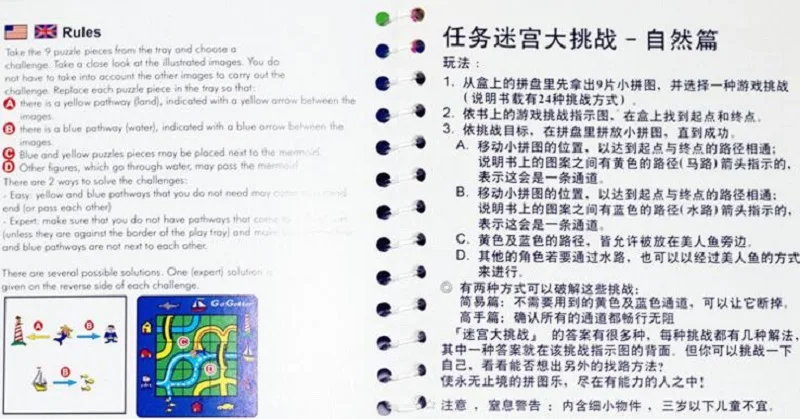 Rules
Take the 9 puzzle pieces from the tray and choose a
challenge. Take a close look at the illustrated images. You do
not have to take into account the other images to carry out the
challenge. Replace each puzzle piece in the tray so that:
A there is a yellow pathway (land), indicated with a yellow arrow between the
images.
B there is a blue pathway (water), indicated with a blue arrow between the
images.
C Blue and yellow puzzle pieces may be placed next to the mermaid.
D Other figures, which go through water, may pass the mermaid
There are 2 ways to solve the challenges:
- Easy: yellow and blue pathways that you do not need may end
end (or pass each other)
- Expert: make sure that you do not have pathways that come to
(unless they are against the border of the play tray) and make
and blue pathways are not next to each other.
There are several possible solutions. One (expert) solution is
given on the reverse side of each challenge.
A B
B
GoGetter
C
C
任务迷宫大挑战 - 自然篇
玩法：
1. 从盒上的拼盘里先拿出9片小拼图，并选择一种游戏挑战
(说明书载有24种挑战方式)。
2. 依书上的游戏挑战指示图，在盒上找到起点和终点。
3. 依挑战目标，在拼盘里拼放小拼图，直到成功。
A. 移动小拼图的位置，以达到起点与终点的路径相通；
说明书上的图案之间有黄色的路径(马路)箭头指示的，
表示这会是一条通道。
B. 移动小拼图的位置，以达到起点与终点的路径相通；
说明书上的图案之间有蓝色的路径(水路)箭头指示的，
表示这会是一条通道。
C. 黄色及蓝色的路径，皆允许被放在美人鱼旁边。
D. 其他的角色若要通过水路，也可以以经过美人鱼的方式
来进行。
◎ 有两种方式可以破解这些挑战：
简易篇：不需要用到的黄色及蓝色通道，可以让它断掉。
高手篇：确认所有的通道都畅行无阻
『迷宫大挑战』的答案有很多种，每种挑战都有几种解法，
其中一种答案就在该挑战指示图的背面．但你可以挑战一下
自己，看看能否想出另外的找路方法？
使永无止境的拼图乐，尽在有能力的人之中！
注意，窒息警告：内含细小物件，三岁以下儿童不宜。